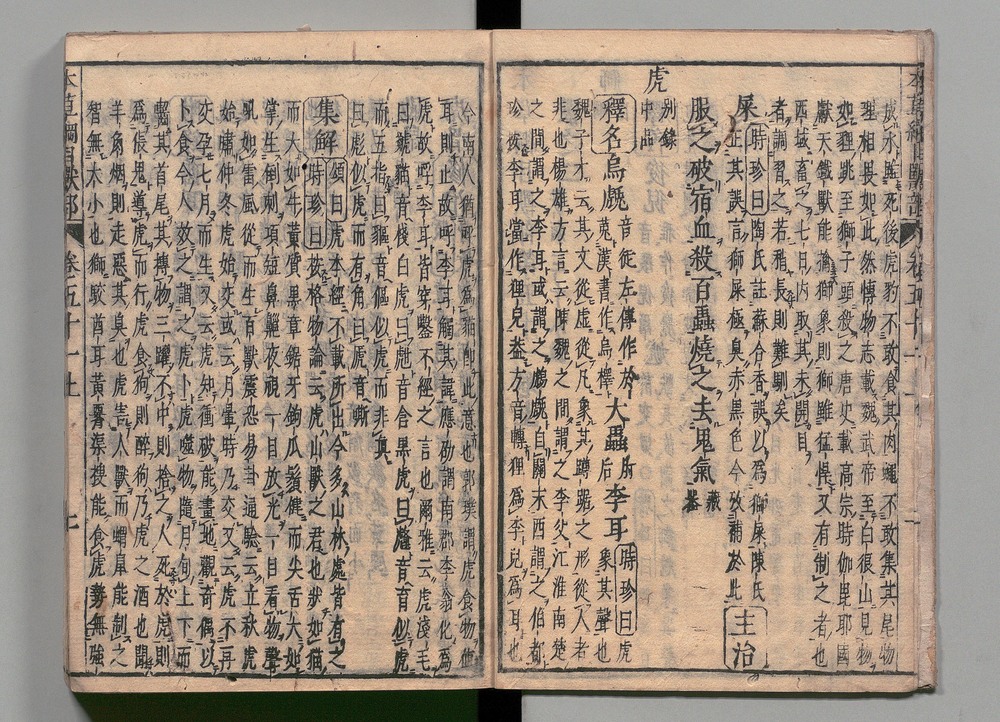 死後虎豹不敢食其肉蠅不敢集其尾物
理相畏如此然博物志載魏武帝至白狼山見物
如貍跳至獅子頭殺之唐史載高宗時伽毘耶國
獻天鐵獸能擒獅象則獅雖猛悍又有制之者也
西域畜之七日內取其未開目
者調習之若稍長則難馴矣
屎
時珍曰陶氏註蘇合香誤以為獅屎陳氏
正其誤言獅屎極臭赤黑色今攷補於此
主治
服之破宿血殺百蟲燒之去鬼氣
藏
器
虎
別錄
中品
釋名烏䖘
音徒左傳作於
菟漢書作烏檡
大蟲
肘
后
李耳
時珍曰虎
象其聲也
魏子才云其文從虍從几象其蹲踞之形從人者
非也揚雄方言云陳魏之間謂之李父江淮南楚
之間謂之李耳或謂之䖘自關東西謂之伯都
珍按李耳當作貍兒蓋方音轉貍為李兒為耳也
今南人猶呼虎為貓即此意也郭璞謂虎食物値
耳則止故呼李耳觸其諱應劭謂南郡李翁化為
虎故呼李耳皆穿鑿不經之言也爾雅云虎淺毛
曰虦貓音棧白虎曰甝音含黑虎曰虪音育似虎
而五指曰貙音傴似虎而非真
曰彪似虎而有角曰虒音嘶
集解
頌曰虎本經不載所出今多山林處皆有之
時珍曰按格物論云虎山獸之君也狀如貓
而大如牛黃質黑章鋸牙鉤爪鬚健而尖舌大如
掌生倒刺項短鼻齆夜視一目放光一目看物聲
吼如雷風從而生百獸震恐易卦通驗云立秋虎
始嘯仲冬虎始交或云月暈時乃交又云虎不再
交孕七月而生又云虎知衝破能畫地觀奇偶以
卜食今人效之謂之虎卜虎噬物隨月旬上下而
齧其首尾其搏物三躍不中則捨之人死於虎則
為倀鬼導虎而行虎食狗則醉狗乃虎之酒也聞
羊角烟則走惡其臭也虎害人獸而蝟鼠能制之
智無大小也獅駮酋耳黃腰渠搜能食虎勢無強
本草綱目獸部
卷五十一上
七